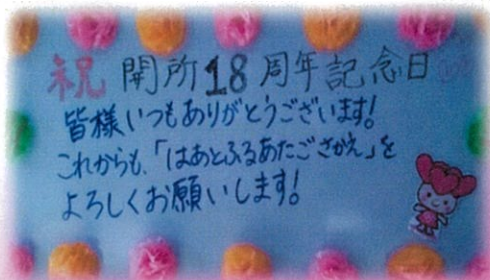 祝 開所18周年記念日
皆様いつもありがとうございます!
これからも、「はあとふるあたごさかえ」を
よろしくお願いします!